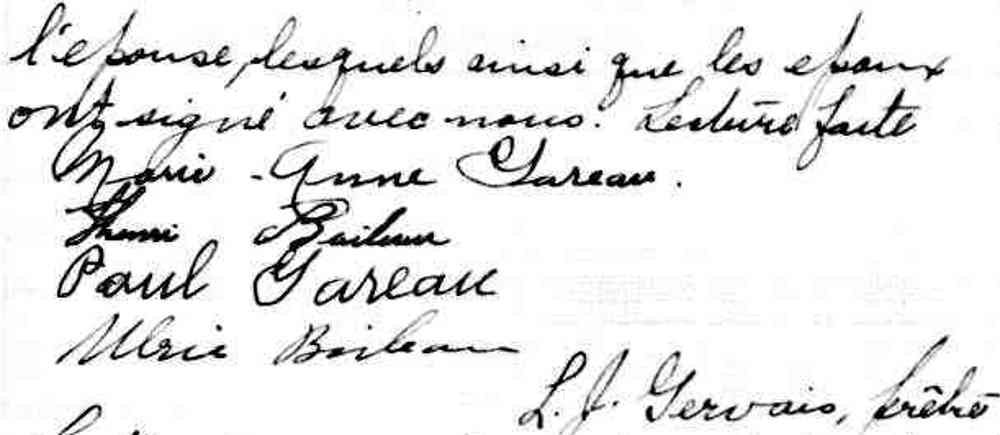 l'epouse, lesquels ainsi que les epoux
ont signé avec nous. Lecture faite
Marie-Anne Gareau.
Henri Boileau
Paul Gareau
Ulric Boileau
L. J. Gervais, prêtre